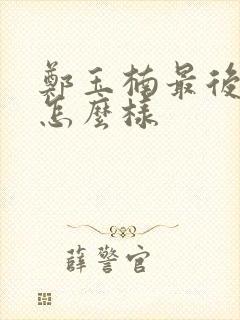 鄭玉楠最後
怎麼樣
薛警官